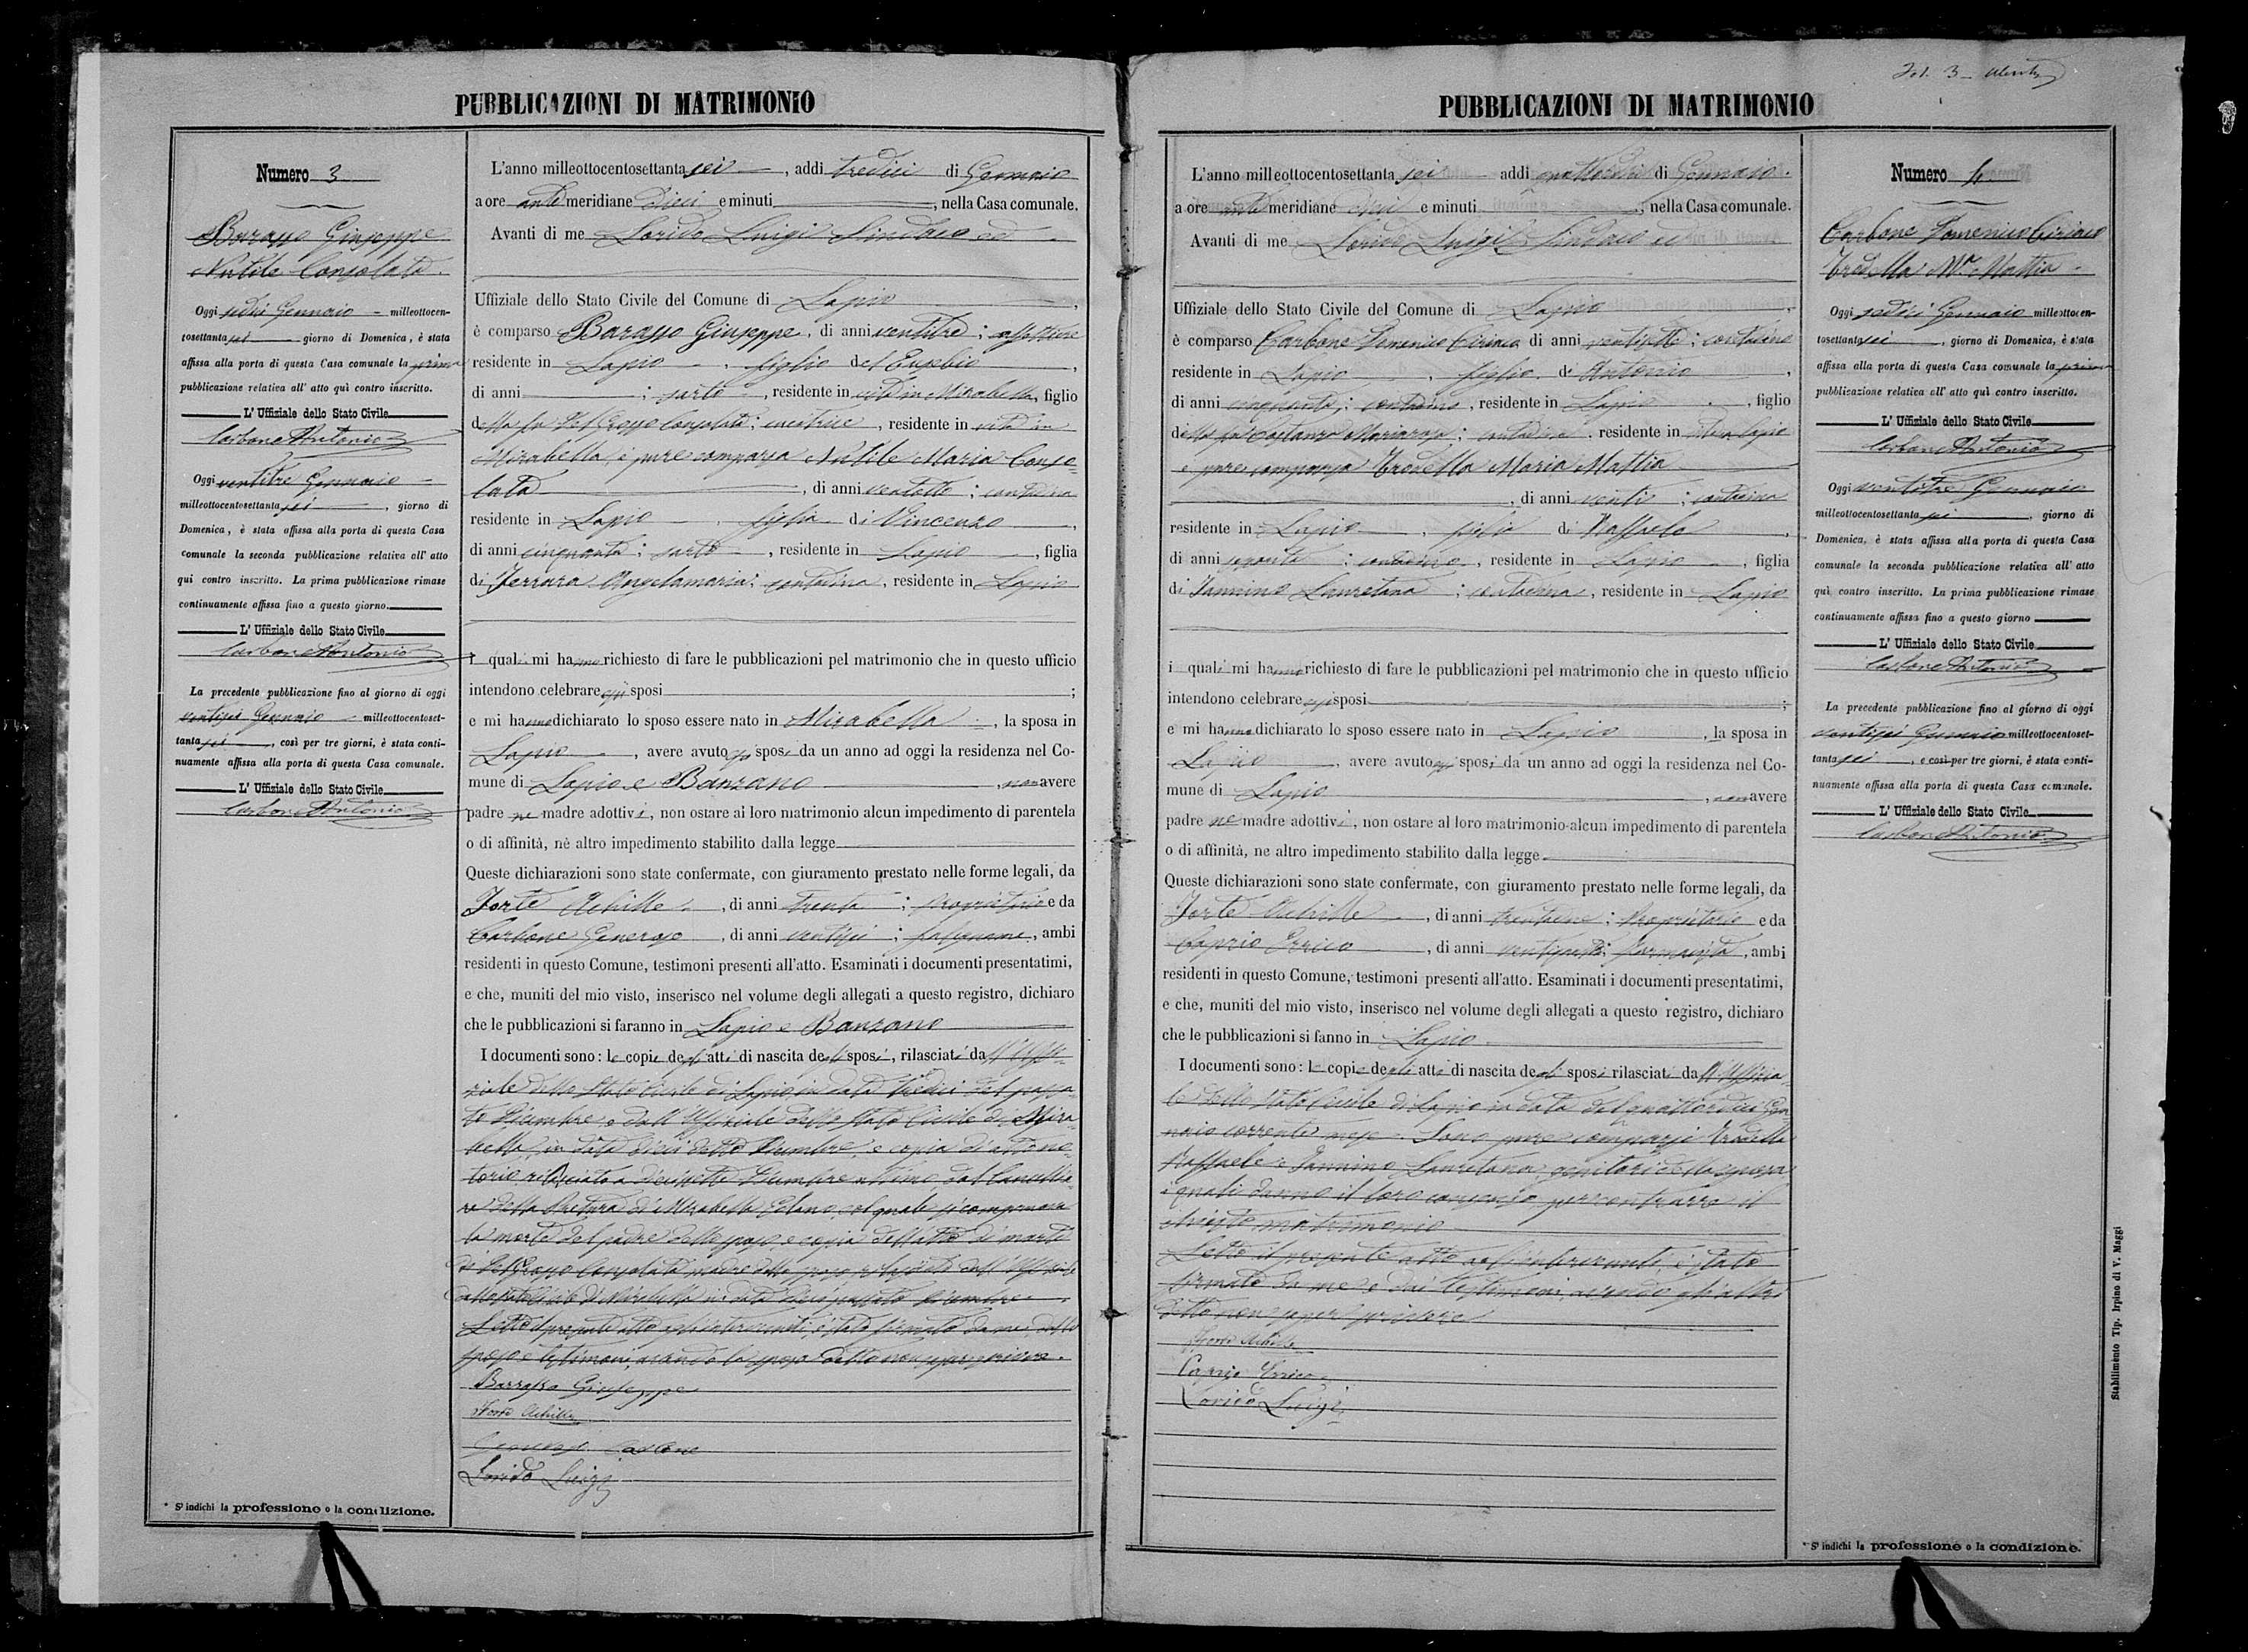 PUBBLICAZIONI DI MATRIMONIO
Numero 3
Barasso Giuseppe
Nutile Consolata
Oggi sedici Gennaio milleottocen-
tosettantasei giorno di Domenica, è stata
affissa alla porta di questa Casa comunale la prima
pubblicazione relativa all' atto quì contro inscritto.
L' Uffiziale dello Stato Civile
Carbone Antonio
Oggi ventitre Gennaio
milleottocentosettantasei, giorno di
Domenica, è stata affissa alla porta di questa Casa
comunale la seconda pubblicazione relativa all' atto
qui contro inscritto. La prima pubblicazione rimase
continuamente affissa fino a questo giorno.
L' Uffiziale dello Stato Civile
Carbone Antonio
La precedente pubblicazione fino al giorno di oggi
ventisei Gennaio milleottocentoset-
tantasei, così per tre giorni, è stata conti-
nuamente affissa alla porta di questa Casa comunale.
L' Uffiziale dello Stato Civile
Carbone Antonio
* Si indichi la professione o la condizione.
L'anno milleottocentosettantasei, addi tredici di Gennaio
a ore antemeridiane dieci e minuti, nella Casa comunale.
Avanti di me Lorido Luigi Sindaco ed
Uffiziale dello Stato Civile del Comune di Lapio,
è comparso Barasso Giuseppe, di anni ventitre;
residente in Lapio, figlio del Eusebio,
di anni ; sarto, residente in vita in Mirabella, figlio
della fu Consolata; cucitrice, residente in vita in
Mirabella, è pure comparsa Nutile Maria Conso-
lata, di anni ventotto; contadina
residente in Lapio, figlia di Vincenzo,
di anni cinquanta; sarto, residente in Lapio, figlia
di Ferrara Angelamaria; contadina, residente in Lapio
i quali mi hanno richiesto di fare le pubblicazioni pel matrimonio che in questo ufficio
intendono celebrare essi sposi;
e mi hanno dichiarato lo sposo essere nato in Mirabella, la sposa in
Lapio, avere avuto gli sposi da un anno ad oggi la residenza nel Co-
mune di Lapio e Banzano, non avere
padre ne madre adottivi, non ostare ai loro matrimonio alcun impedimento di parentela
o di affinità, nè altro impedimento stabilito dalla legge
Queste dichiarazioni sono state confermate, con giuramento prestato nelle forme legali, da
Forte Achille, di anni trenta; proprietario e da
Carbone Generoso, di anni ventisei; falegname, ambi
residenti in questo Comune, testimoni presenti all'atto. Esaminati i documenti presentatimi,
e che, muniti del mio visto, inserisco nel volume degli allegati a questo registro, dichiaro
che le pubblicazioni si faranno in Lapio e Banzano
I documenti sono: le copie degli atti di nascita degli sposi, rilasciati dall'Uffi-
ziale dello Stato Civile di Lapio in data tredici del passa-
to Dicembre, e dall'Uffiziale dello Stato Civile di Mira-
bella, in data dieci detto Dicembre, e copia di atto no-
torio rilasciato a diciassette Dicembre ultimo dal Cancellie-
re della Pretura di Mirabella Eclano, col quale si comprova
la morte del padre dello sposo, e copia dell'atto di morte
di Consolata madre dello sposo, rilasciata dall'Uffiziale
dello Stato Civile di Mirabella in data dieci passato Dicembre.
Letto il presente atto agli intervenuti, è stato firmato da me, dallo
sposo e testimoni, avendo la sposa detto non sapere scrivere.
Barrasso Giuseppe
Forte Achille
Generoso Carbone
Lorido Luigi
Fol. 3
PUBBLICAZIONI DI MATRIMONIO
L'anno milleottocentosettantasei addi quattordici di Gennaio.
a ore antemeridiane dieci e minuti, nella Casa comunale.
Avanti di me Lorido Luigi Sindaco ed
Uffiziale dello Stato Civile del Comune di Lapio,
è comparso Carbone Domenico Ciriaco di anni ventisette; contadino
residente in Lapio, figlio di Antonio,
di anni cinquanta; contadino, residente in Lapio, figlio
della fu Costanzo Mariarosa; contadina, residente in vita in Lapio
è pure comparsa Trodella Maria Mattia
, di anni venti; contadina
residente in Lapio, figlia di Raffaele,
di anni sessanta; contadino, residente in Lapio, figlia
di Iannino Lauretana; contadina, residente in Lapio
i quali mi hanno richiesto di fare le pubblicazioni pel matrimonio che in questo ufficio
intendono celebrare essi sposi;
e mi hanno dichiarato lo sposo essere nato in Lapio, la sposa in
Lapio, avere avuto gli sposi da un anno ad oggi la residenza nel Co-
mune di Lapio, non avere
padre ne madre adottivi, non ostare al loro matrimonio alcun impedimento di parentela
o di affinità, ne altro impedimento stabilito dalla legge
Queste dichiarazioni sono state confermate, con giuramento prestato nelle forme legali, da
Forte Achille, di anni trentuno; proprietario e da
Caprio Errico, di anni; farmacista, ambi
residenti in questo Comune, testimoni presenti all'atto. Esaminati i documenti presentatimi,
e che, muniti del mio visto, inserisco nel volume degli allegati a questo registro, dichiaro
che le pubblicazioni si fanno in Lapio
I documenti sono: le copie degli atti di nascita degli sposi rilasciati dall'Uffizia-
le dello Stato Civile di Lapio in data del quattordici Gen-
naio corrente mese. Sono pure comparsi Trodella
Raffaele e Iannino Lauretana, genitori della sposa,
i quali danno il loro consenso per contrarre il
chiesto matrimonio
Letto il presente atto agli intervenuti, è stato
firmato da me e dai testimoni, avendo gli altri
detto non sapere scrivere
Forte Achille
Caprio Errico
Lorido Luigi
Numero 4
Carbone Domenico Ciriaco
Trodella Ma. Mattia
Oggi sedici Gennaio milleottocen-
tosettantasei, giorno di Domenica, è stata
affissa alla porta di questa Casa comunale la prima
pubblicazione relativa all' atto quì contro inscritto.
L' Uffiziale dello Stato Civile
Carbone Antonio
Oggi ventitre Gennaio
milleottocentosettantasei, giorno di
Domenica, è stata affissa alla porta di questa Casa
comunale la seconda pubblicazione relativa all' atto
quì contro inscritto. La prima pubblicazione rimase
continuamente affissa fino a questo giorno
L' Uffiziale dello Stato Civile
Carbone Antonio
La precedente pubblicazione fino al giorno di oggi
ventisei Gennaio milleottocentoset-
tantasei, e così per tre giorni, è stata conti-
nuamente affissa alla porta di questa Casa comunale.
L' Uffiziale dello Stato Civile
Carbone Antonio
* Si indichi la professione o la condizione.
Stabilimento Tip. Irpino di V. Maggi